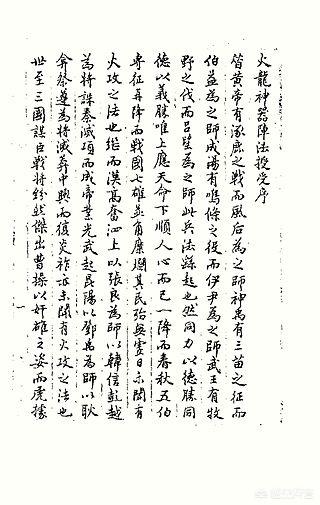 火龍神器陣法授受序
昔黃帝有涿鹿之戰而風后為之師神禹有三苗之征而
伯益為之師成湯有鳴條之役而伊尹為之師武王有牧
野之伐而呂望為之師此兵法繇起也然同力以德勝同
德以義勝唯上應天命下順人心而已一降而春秋五伯
專征再降而戰國七雄並角糜爛其民殆無雲日亦聞有
火攻之法也繼而漢高奮泗上以張良為師以韓信彭越
為將誅秦滅項而成帝業光武起昆陽以鄧禹為師以耿
弇祭遵為將滅莽中興而復炎祚亦未聞有火攻之法也
世至三國謀臣戰將紛然傑出曹操以奸雄之姿而虎據